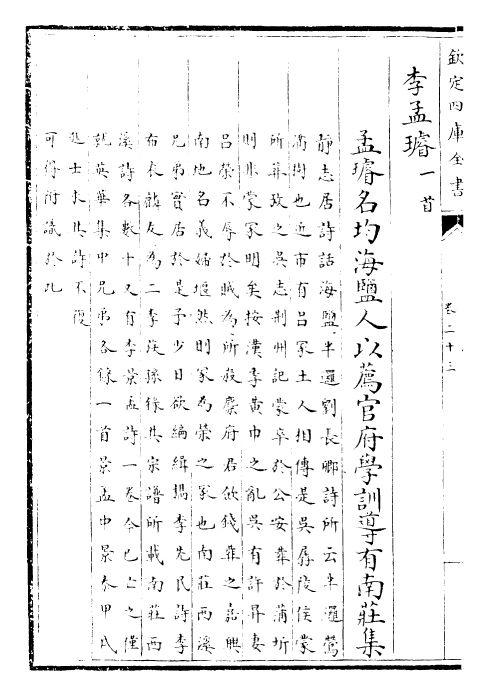 欽定四庫全書
卷二十三
李孟璿一首
孟璿名均海鹽人以薦官府學訓導有南莊集
靜志居詩話海鹽半邏劉長卿詩所云半邏鶯
滿樹也近市有吕冢土人相傳是吳孱陵侯蒙
所葬攷之吳志荆州記蒙卒於公安葬於蒲圻
則非蒙冢明矣按漢季黄巾之亂吳有許昇妻
吕榮不辱於賊為所殺糜府君歛錢葬之嘉興
南地名義婦堰然則冢為榮之冢也南莊西溪
兄弟實居於是予少日欲編緝檇李先民詩李
布衣麟友為二李後孫錄其宗譜所載南莊西
溪詩各數十又有李景孟詩一卷今已亡之僅
就英華集中兄弟各錄一首景孟中景泰甲戌
進士求其詩不復
可得附議於此